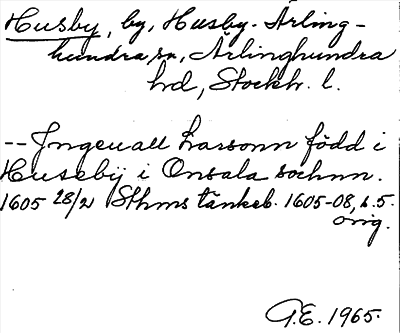 Husby, by, Husby-Ärling-
hundra sn, Ärlinghundra
hd, Stockh. l.
--Ingeuall Larsonn född i
Huseby i Onsala sochnn.
1605 28/2 Sthms tänkeb. 1605-08, s. 5.
orig.
G.E. 1965.